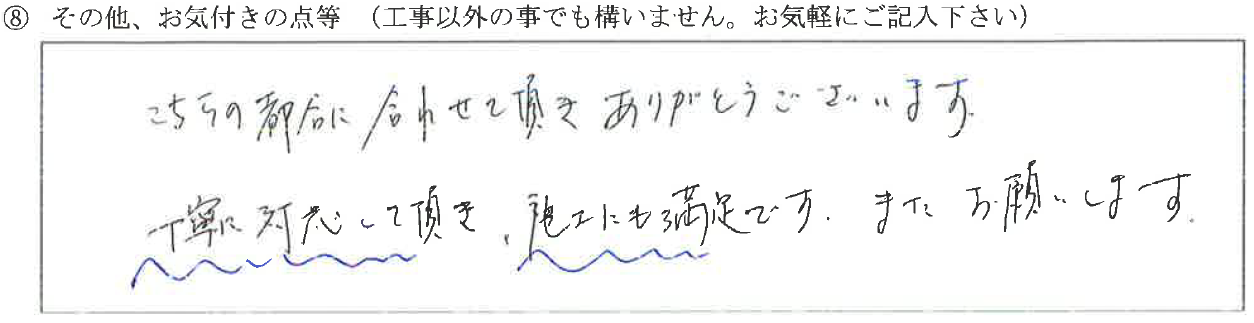 ⑧ その他、お気付きの点等 （工事以外の事でも構いません。お気軽にご記入下さい）
こちらの都合に合わせて頂き ありがとうございます。
丁寧に対応して頂き、施工にも満足です. また お願いします.